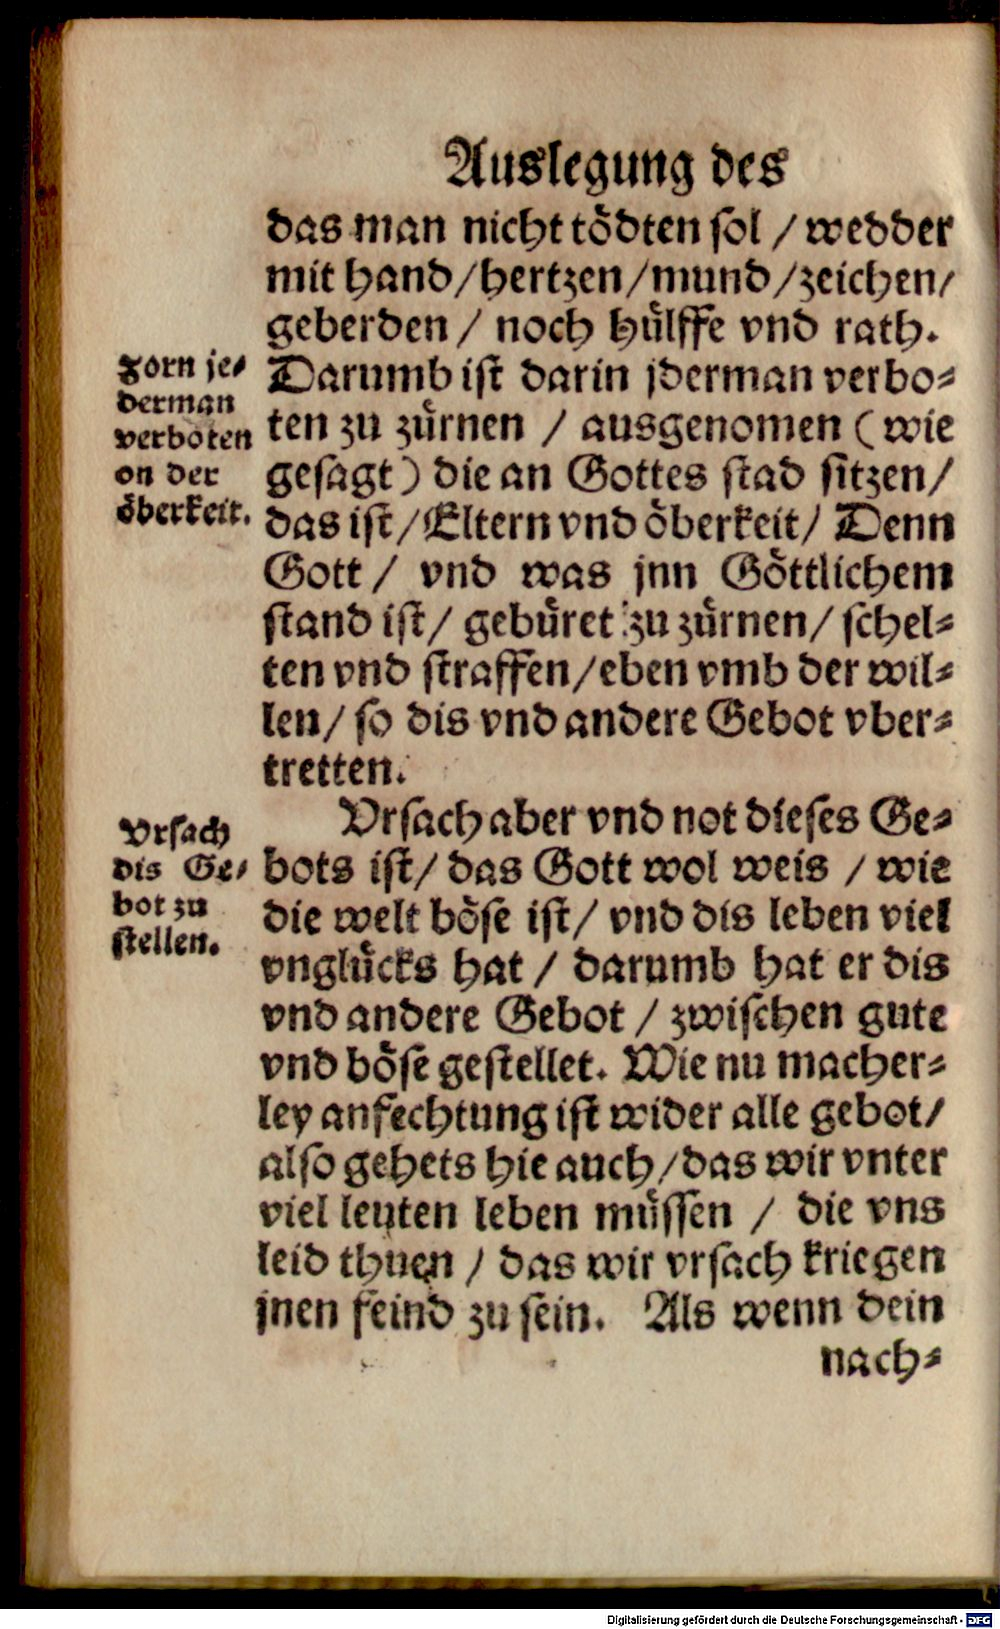 Auslegung des
das man nicht tödten sol / wedder
mit hand / hertzen / mund / zeichen /
geberden / noch hülffe vnd rath.
Darumb ist darin jderman verbo=
ten zu zürnen / ausgenomen ( wie
gesagt ) die an Gottes stad sitzen /
das ist / Eltern vnd öberkeit / Denn
Gott / vnd was jnn Göttlichem
stand ist / gebüret zu zürnen / schel=
ten vnd straffen / eben vmb der wil=
len / so dis vnd andere Gebot vber=
tretten.
Zorn je=
derman
verboten
on der
öberkeit.
Vrsach aber vnd not dieses Ge=
bots ist / das Gott wol weis / wie
die welt böse ist / vnd dis leben viel
vnglücks hat / darumb hat er dis
vnd andere Gebot / zwischen gute
vnd böse gestellet. Wie nu macher=
ley anfechtung ist wider alle gebot /
also gehets hie auch / das wir vnter
viel leuten leben müssen / die vns
leid thuen / das wir vrsach kriegen
jnen feind zu sein. Als wenn dein
nach=
Vrsach
dis Ge=
bot zu
stellen.
Digitalisierung gefördert durch die Deutsche Forschungsgemeinschaft - DFG